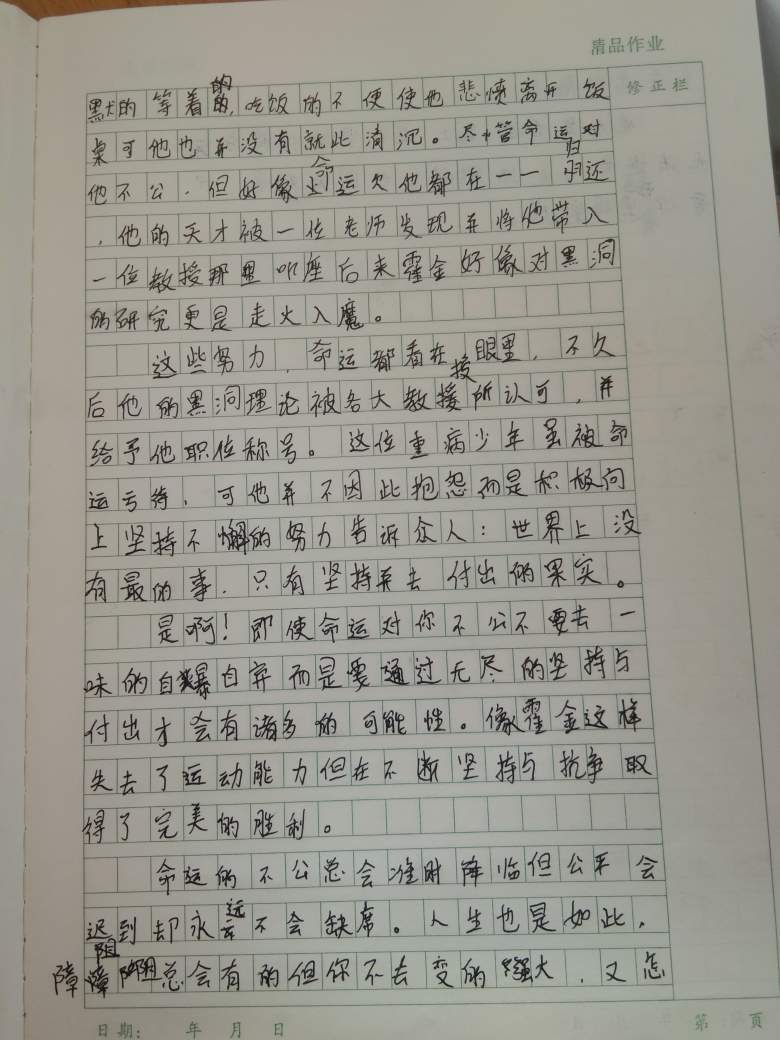 清品作业
修正栏
默的等着的,吃饭的不便使他悲愤离开饭
桌可他也并没有就此消沉。尽管命运对
他不公,但好像命运欠他都在一一归还
,他的天才被一位老师发现并将他带入
一位教授那里听座后来霍金好像对黑洞
的研究更是走火入魔。
这些努力,命运都看在眼里,不久
后他的黑洞理论被各大教授所认可,并
给予他职位称号。这位重病少年虽被命
运亏待,可他并不因此抱怨而是积极向
上坚持不懈的努力告诉众人:世界上没
有最的事,只有坚持去付出的果实。
是啊!即使命运对你不公不要去一
味的自暴自弃而是要通过无尽的坚持与
付出才会有诸多的可能性。像霍金这样
失去了运动能力但在不断坚持与抗争取
得了完美的胜利。
命运的不公总会准时降临但公平会
迟到却永远不会缺席。人生也是如此,
障阻总会有的但你不去变的强大,又怎
日期: 年 月 日
第 页